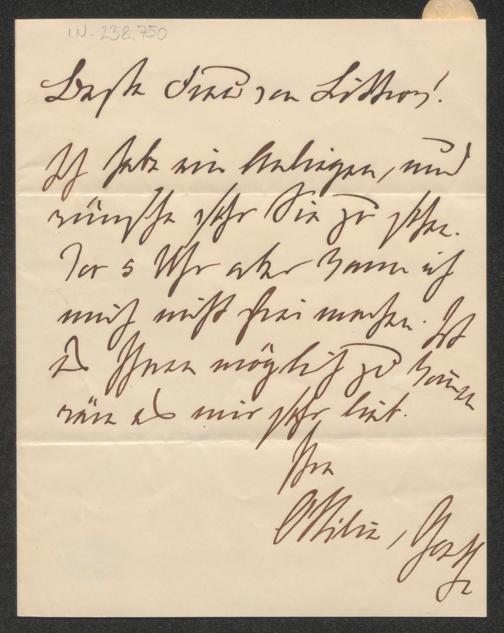 I.N. 238.750
Beste Frau von Littrow!
Ich habe ein Anliegen, und
wünsche sehr Sie zu sehen.
Vor 5 Uhr aber kann ich
mich nicht frei machen. Ist
es Ihnen möglich zu kommen
wäre es mir sehr lieb.
Ihre
Ottilie, Goethe